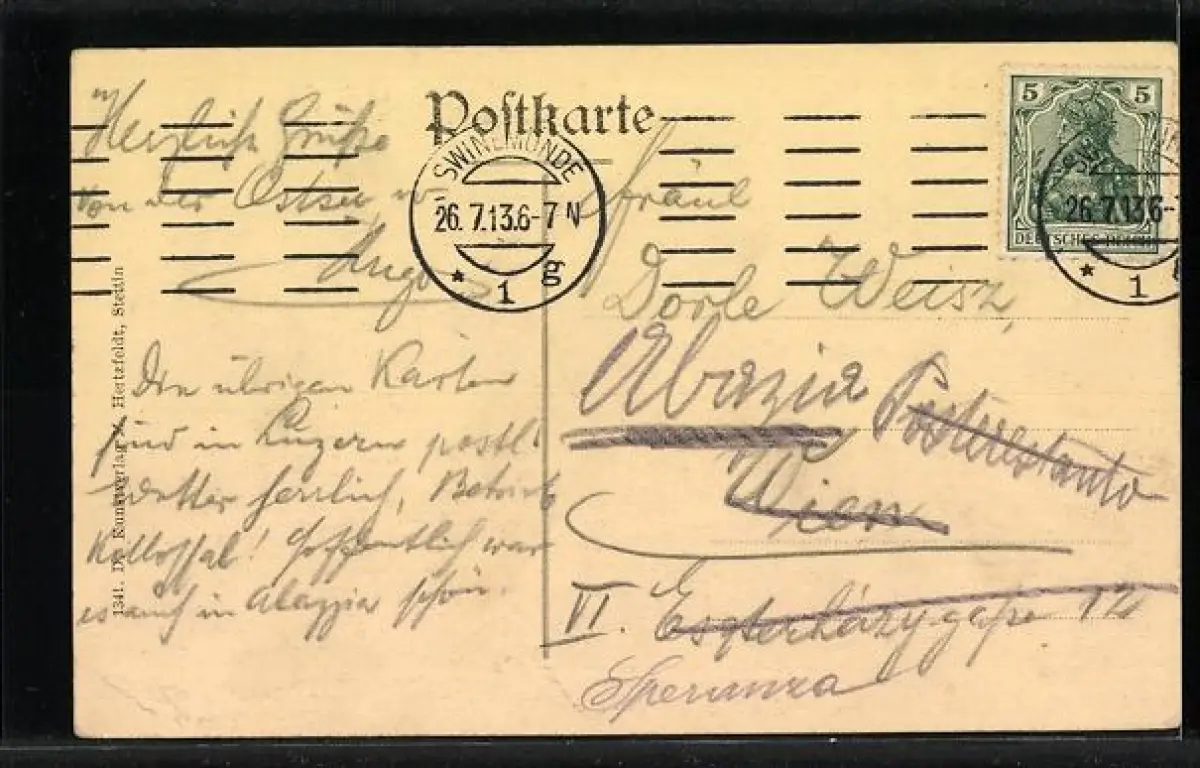 Postkarte
Herzliche Grüße
von der Ostsee
Hugo
SWINEMÜNDE
26.7.13.6-7N
* 1 g
5 5
DEUTSCHES REICH
26.7.13.6-7
* 1
Die übrigen Karten
sind in Luzern postl.
Wetter herrlich, Betrieb
Kollossal! Hoffentlich war
es auch in Abazzia schön.
Fräul
Dorle Weisz,
Abazia
Posterestante
Wien
VI. Eszterházygasse 12
Speranza
1341. Kunstverlag Hertzfeldt, Stettin